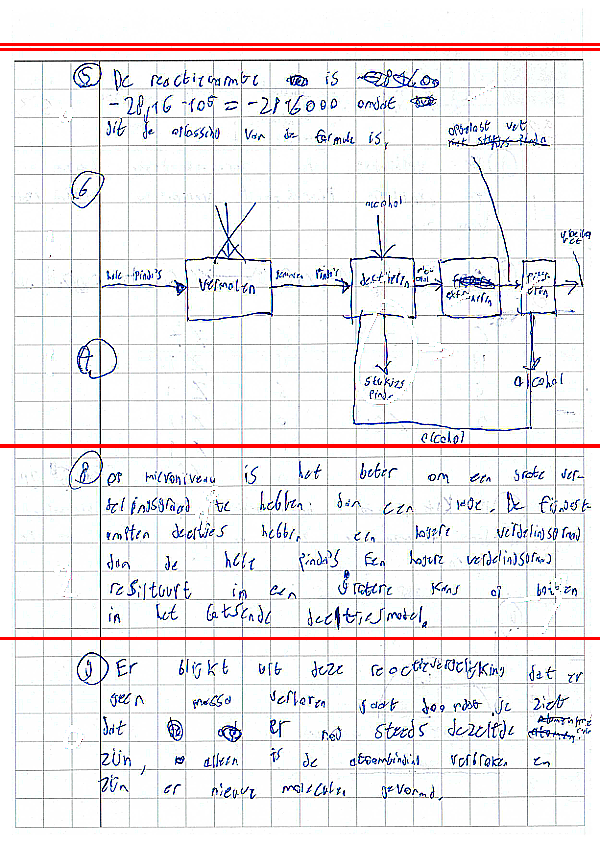 5 De reactiewarmte is
-28,16 · 10⁵ = -2816000 omdat
dit de oplossing van de formule is,
opgelost vet
6
alcohol
hele pinda's
vermalen
gemalen pinda's
extraheren
alcohol
stukjes pinda
alcohol
7
8 op microniveau is het beter om een grote ver-
delingsgraad te hebben dan een lage. De fijngest-
ampten deeltjes hebben een hogere verdelingsgraad
dan de hele pinda's Een hogere verdelingsgraad
resulteert in een grotere kans op botsen
in het botsende deeltjesmodel.
9 Er blijkt uit deze reactievergelijking dat er
geen massa verloren gaat doordat je ziet
dat er nog steeds dezelfde
zijn, alleen is de atoombinding verbroken en
zijn er nieuwe moleculen gevormd.